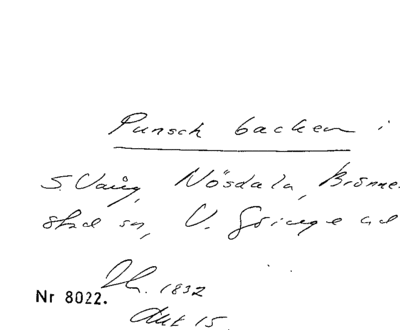 Punsch backen i
S. Vång, Nösdala, Brönne-
stad sn, V. Göinge hd
Th. 1832
Nr 8022.
Akt 15.